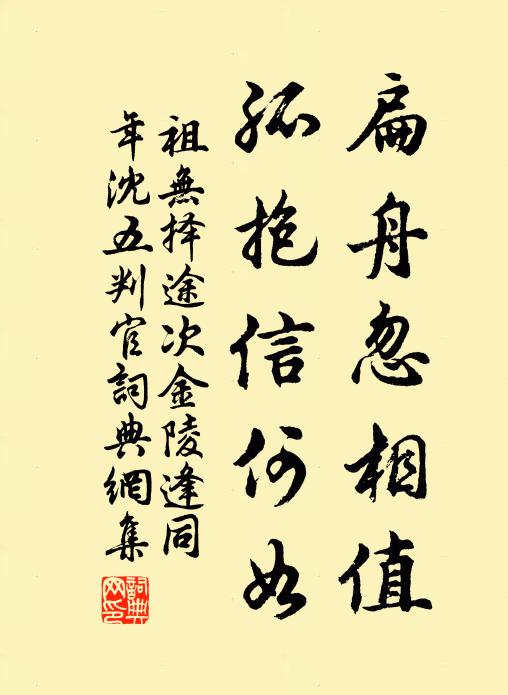 扁舟忽相值
孤抱信何如
祖無择途次金陵逢同
年沈五判官詞典網集
詞典網印